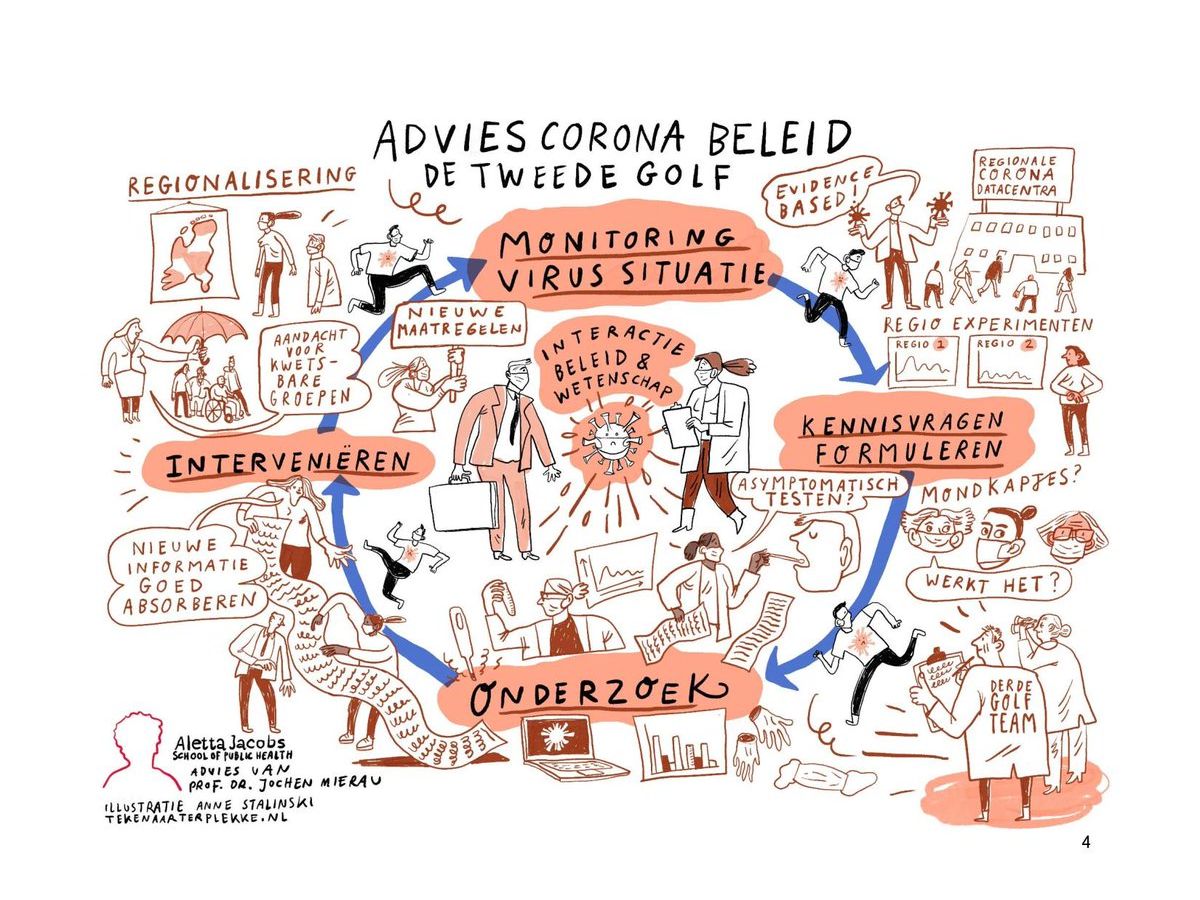 ADVIES CORONA BELEID
DE TWEEDE GOLF
REGIONALISERING
MONITORING
VIRUS SITUATIE
EVIDENCE
BASED!
REGIONALE
CORONA
DATACENTRA
NIEUWE
MAATREGELEN
AANDACHT
VOOR
KWETS-
BARE
GROEPEN
INTERACTIE
BELEID &
WETENSCHAP
REGIO EXPERIMENTEN
REGIO 1
REGIO 2
INTERVENIËREN
KENNISVRAGEN
FORMULEREN
ASYMPTOMATISCH
TESTEN?
MONDKAPJES?
WERKT HET?
NIEUWE
INFORMATIE
GOED
ABSORBEREN
ONDERZOEK
DERDE
GOLF
TEAM
Aletta Jacobs
SCHOOL OF PUBLIC HEALTH
ADVIES VAN
PROF. DR. JOCHEN MIERAU
ILLUSTRATIE ANNE STALINSKI
TEKENAARTERPLEKKE.NL
4